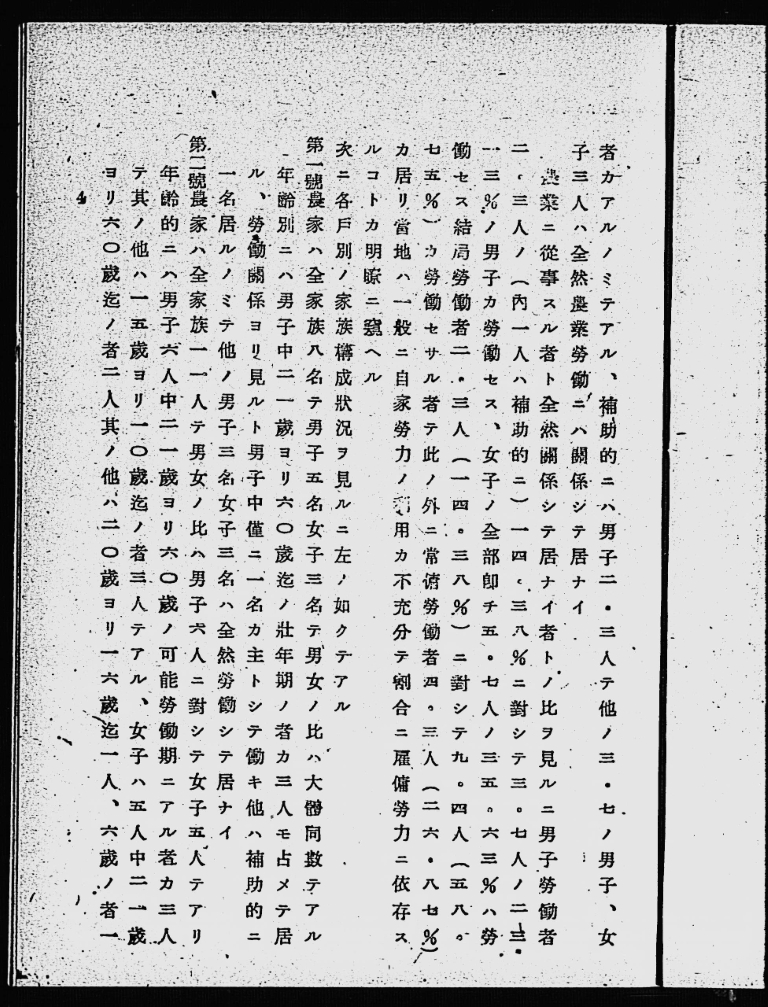 者カアルノミテアル、補助的ニハ男子二・三人テ他ノ三・七ノ男子、女
子三人ハ全然農業勞働ニハ關係シテ居ナイ
農業ニ從事スル者ト全然關係シテ居ナイ者トノ比ヲ見ルニ男子勞働者
二・三人ノ（內一人ハ補助的ニ）一四・三八％ニ對シテ三・七人ノ二三
一三％ノ男子カ勞働セス、女子ノ全部卽チ五・七人ノ三五・六三％ハ勞
働セス結局勞働者二・三人（一四・三八％）ニ對シテ九・四人（五八・
七五％）カ勞働セサル者テ此ノ外ニ常傭勞働者四・三人（二六・八七％）
カ居リ當地ハ一般ニ自家勞力ノ利用カ不充分テ割合ニ雇傭勞力ニ依存ス
ルコトカ明瞭ニ窺ヘル
次ニ各戶別ノ家族構成狀況ヲ見ルニ左ノ如クテアル
第一號農家ハ全家族八名テ男子五名女子三名テ男女ノ比ハ大體同數テアル
年齡別ニハ男子中二一歲ヨリ六〇歲迄ノ壯年期ノ者カ三人モ占メテ居
ル、勞働關係ヨリ見ルト男子中僅ニ一名カ主トシテ働キ他ハ補助的ニ
一名居ルノミテ他ノ男子三名女子三名ハ全然勞働シテ居ナイ
第二號農家ハ全家族一一人テ男女ノ比ハ男子六人ニ對シテ女子五人テアリ
年齡的ニハ男子六人中二一歲ヨリ六〇歲ノ可能勞働期ニアル者カ三人
テ其ノ他ハ一五歲ヨリ一〇歲迄ノ者三人テアル、女子ハ五人中二一歲
ヨリ六〇歲迄ノ者二人其ノ他ハ二〇歲ヨリ一六歲迄一人、六歲ノ者一
4